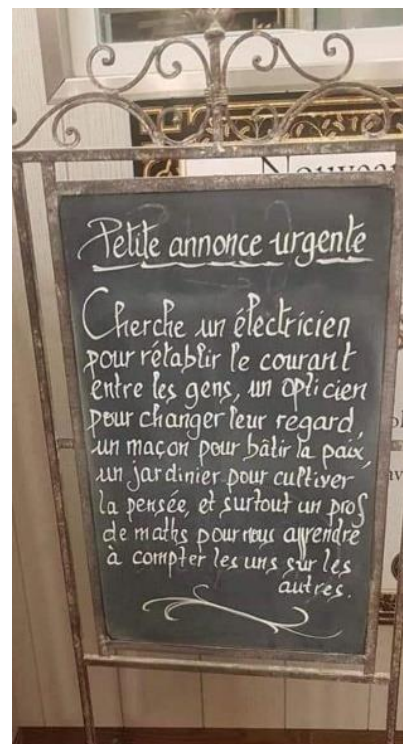 Nouveau
Petite annonce urgente
Cherche un électricien
pour rétablir le courant
entre les gens, un opticien
pour changer leur regard,
un maçon pour bâtir la paix,
un jardinier pour cultiver
la pensée, et surtout un prof
de maths pour nous apprendre
à compter les uns sur les
autres.